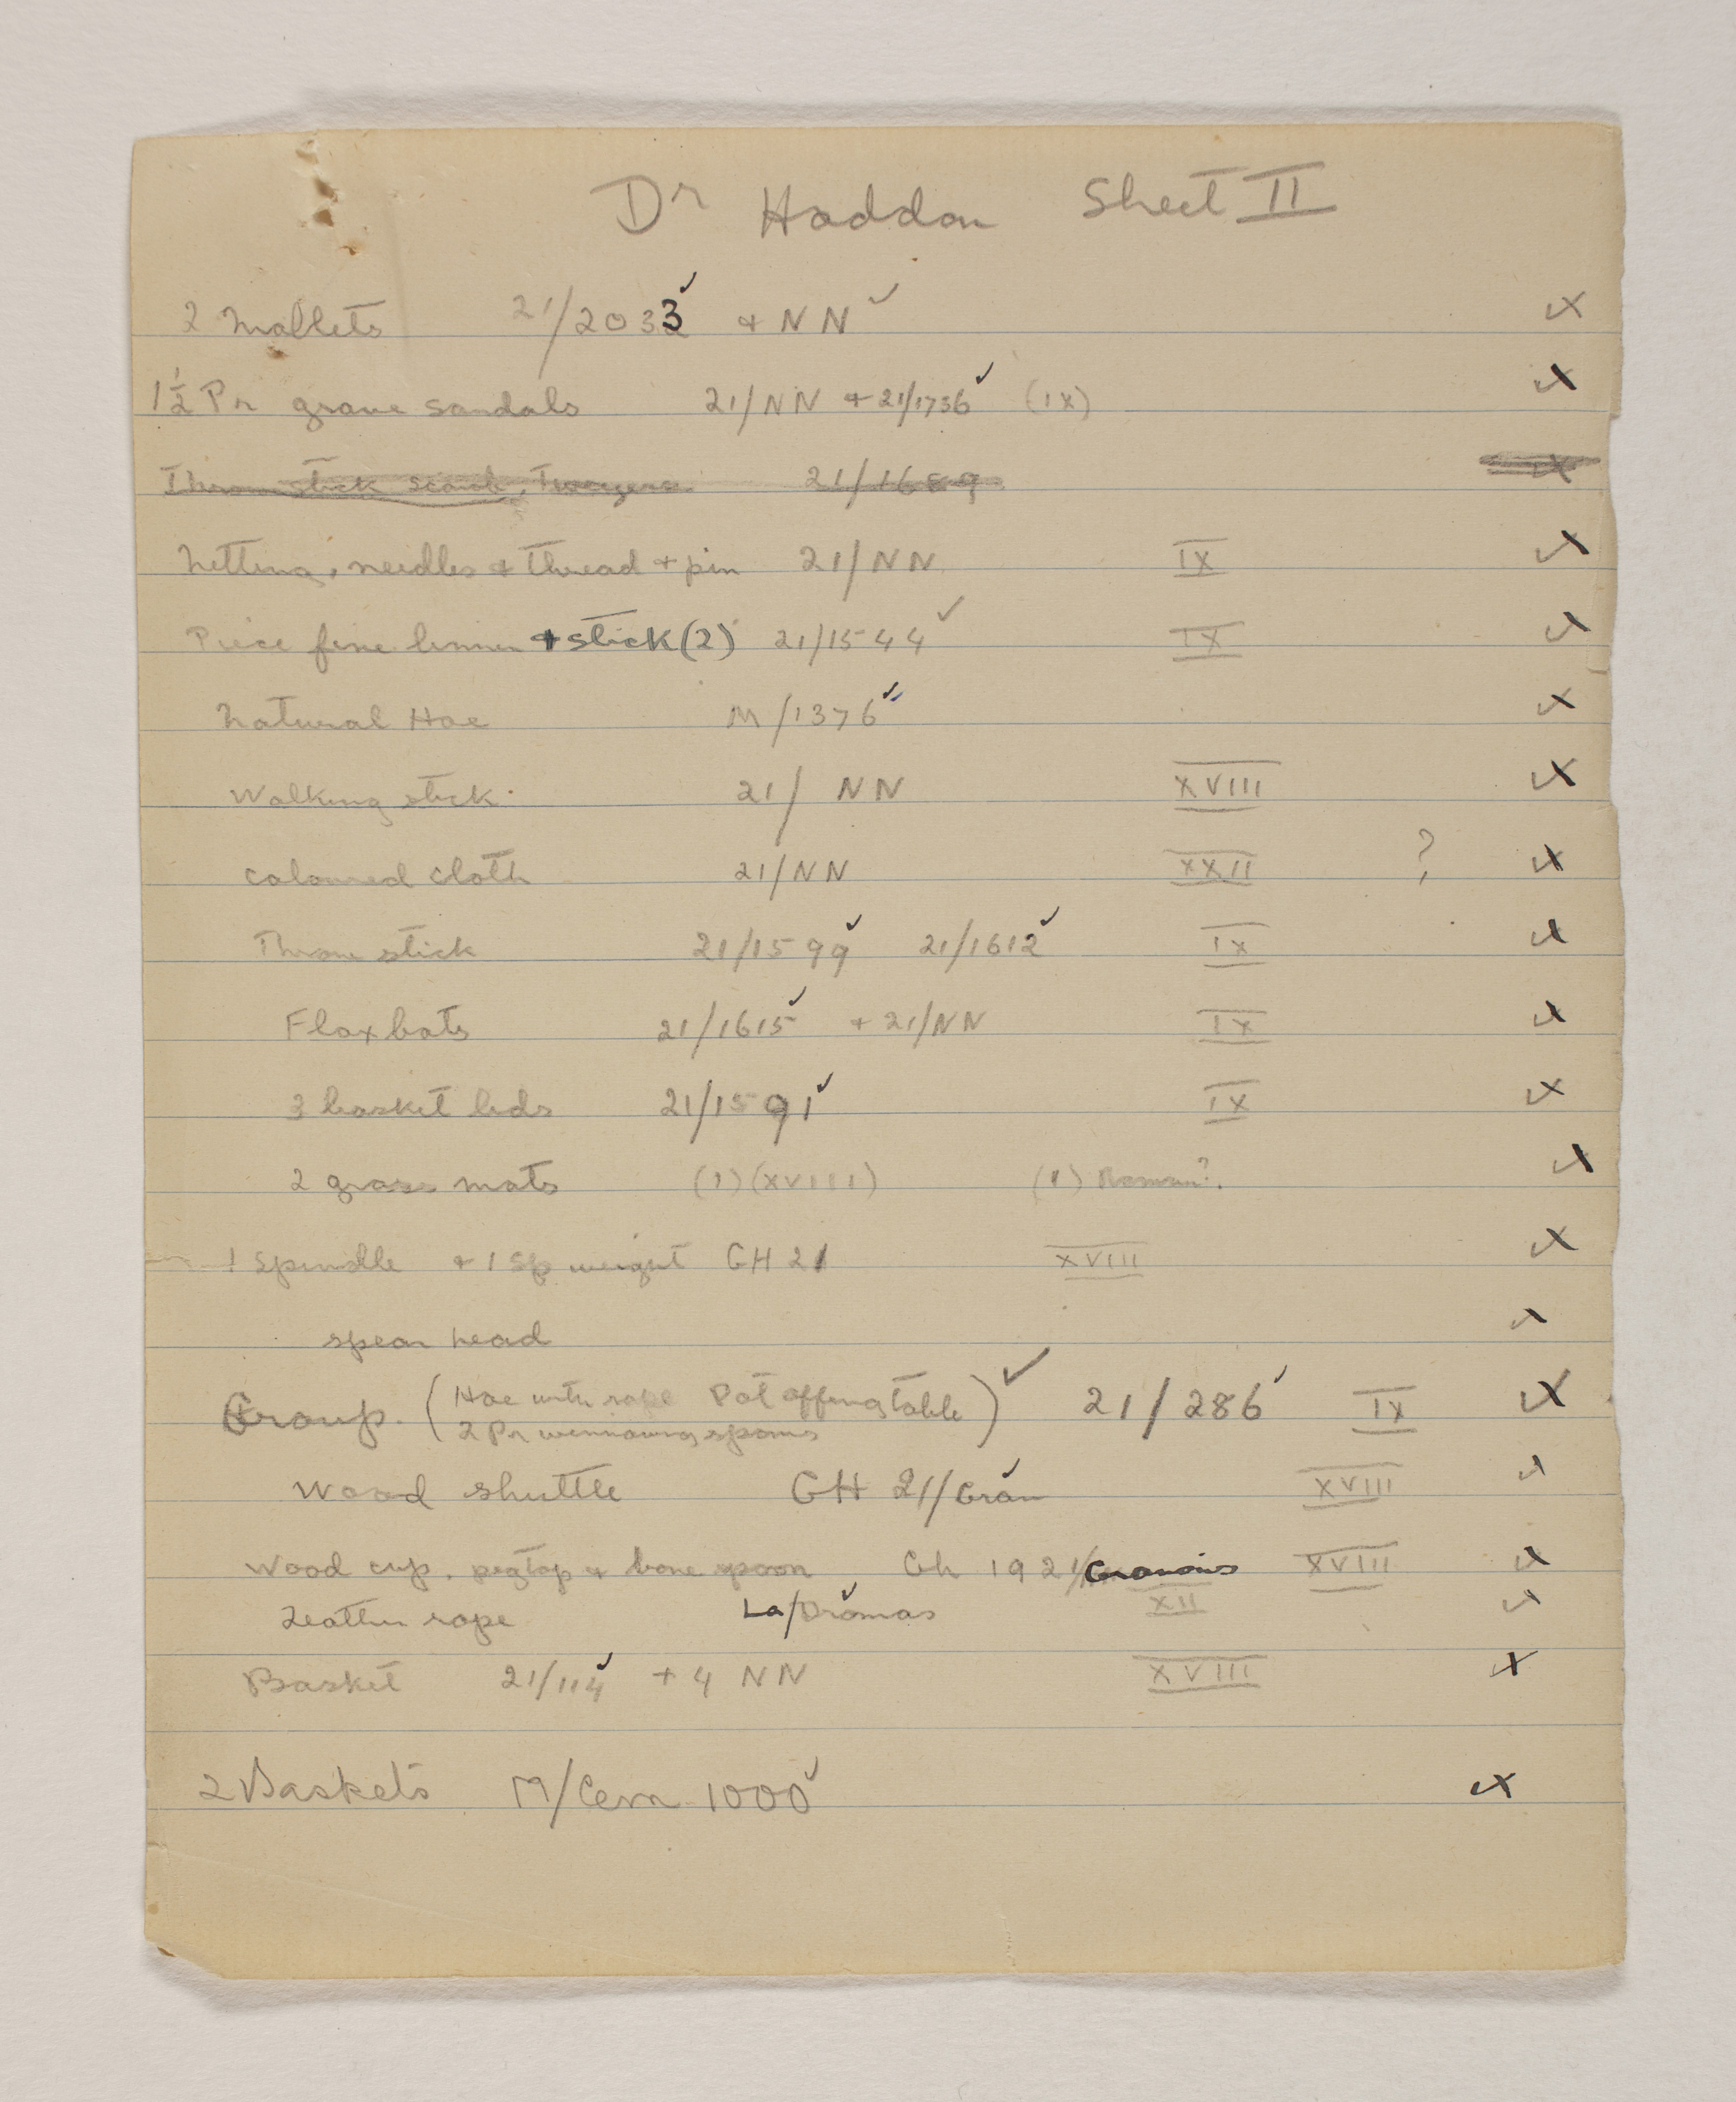 Dr Haddon Sheet II
2 Mallets 21/2033 ✓ + NN ✓ ✓ x
1½ Pr grave sandals 21/NN + 21/1736 ✓ (IX) ✓ x
Throwstick scarab, Tweezers 21/1689 ✓ x
Netting, needles + thread + pin 21/NN IX ✓ x
Piece fine linnen + stick (2) 21/1544 ✓ IX ✓ x
Natural Hoe M/1376 ✓ ✓ x
Walking stick 21/ NN XVIII ✓ x
coloured cloth 21/NN XXII ? ✓ x
Throw stick 21/1599 ✓ 21/1612 ✓ IX ✓ x
Flax bats 21/1615 ✓ + 21/NN IX ✓ x
3 basket lids 21/1591 ✓ IX ✓ x
2 grass mats (1) (XVIII) (1) Roman?. ✓ x
1 Spindle + 1 Sp weight GH 21 XVIII ✓ x
spear head ✓ x
Group. (Hoe with rope Pot offering table) ✓ 21/286 ✓ IX ✓ x
2 Pr winnowing spoons
Wood shuttle GH 21/Gran ✓ XVIII ✓ x
Wood cup, pegtop + bone spoon Gh 1921/Granaries XVIII ✓ x
Leather rope La/Dromas ✓ XII ✓ x
Basket 21/114 ✓ + 4 NN XVIII ✓ x
2 Baskets M/Cem 1000 ✓ ✓ x